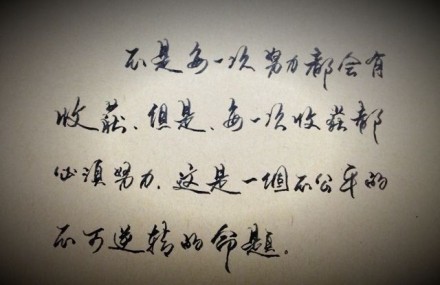 不是每一次努力都会有
收获、但是、每一次收获都
必须努力、这是一個不公平的
不可逆转的命题.